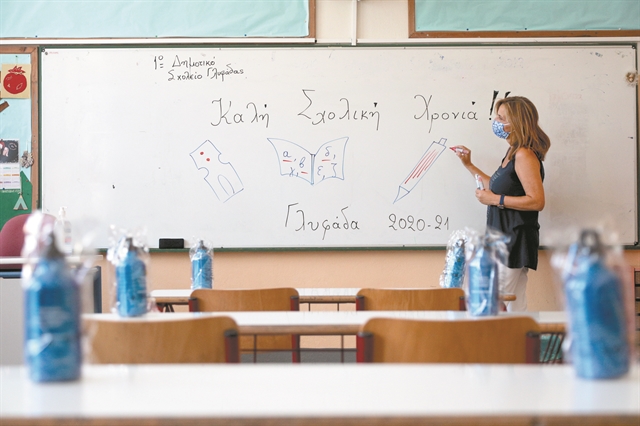 1ο Δημοτικό
Σχολείο Γλυφάδας
Καλή Σχολική Χρονιά!!
α, β δ,
γ, ε, ζ
Γλυφάδα 2020-21